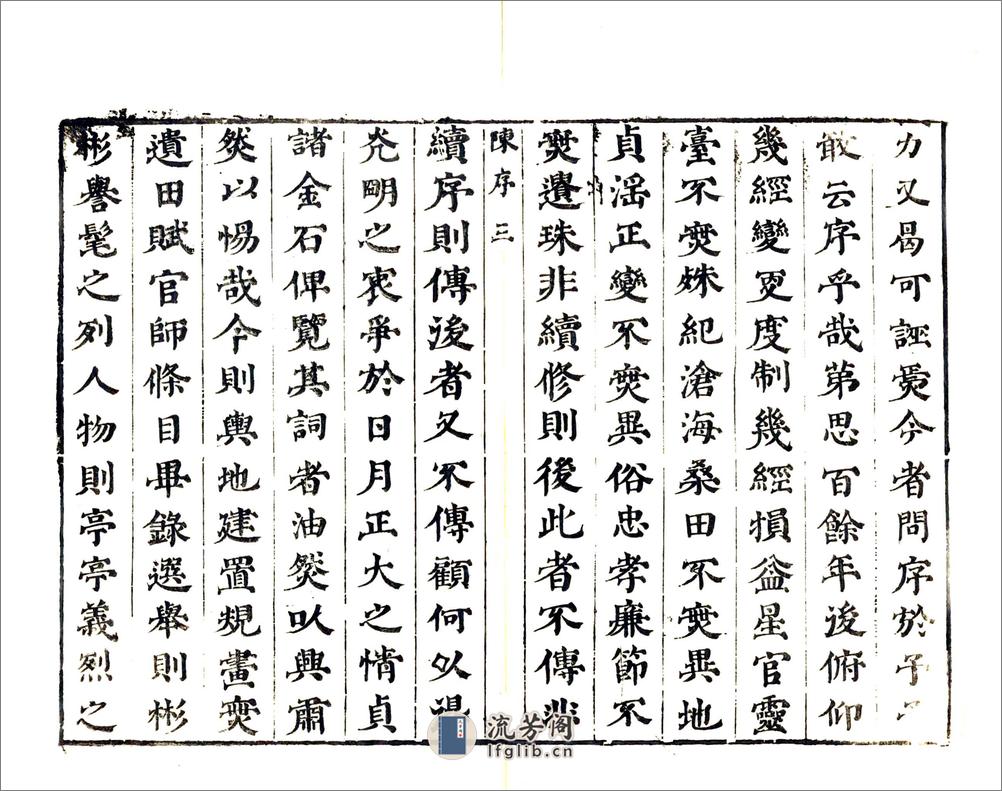 力又曷可誣焉今者問序於予
敢云序乎哉第思百餘年後俯仰
幾經變更度制幾經損益星官靈
臺不無殊紀滄海桑田不無異地
貞滛正變不無異俗忠孝廉節不
無遺珠非續修則後此者不傳非
陳序 三
續序則傳後者又不傳顧何以
光明之衷爭於日月正大之情貞
諸金石俾覽其詞者油然以興肅
然以惕哉今則輿地建置規畫無
遺田賦官師條目畢錄選舉則彬
彬譽髦之列人物則亭亭義烈之
流芳阁
lfglib.cn